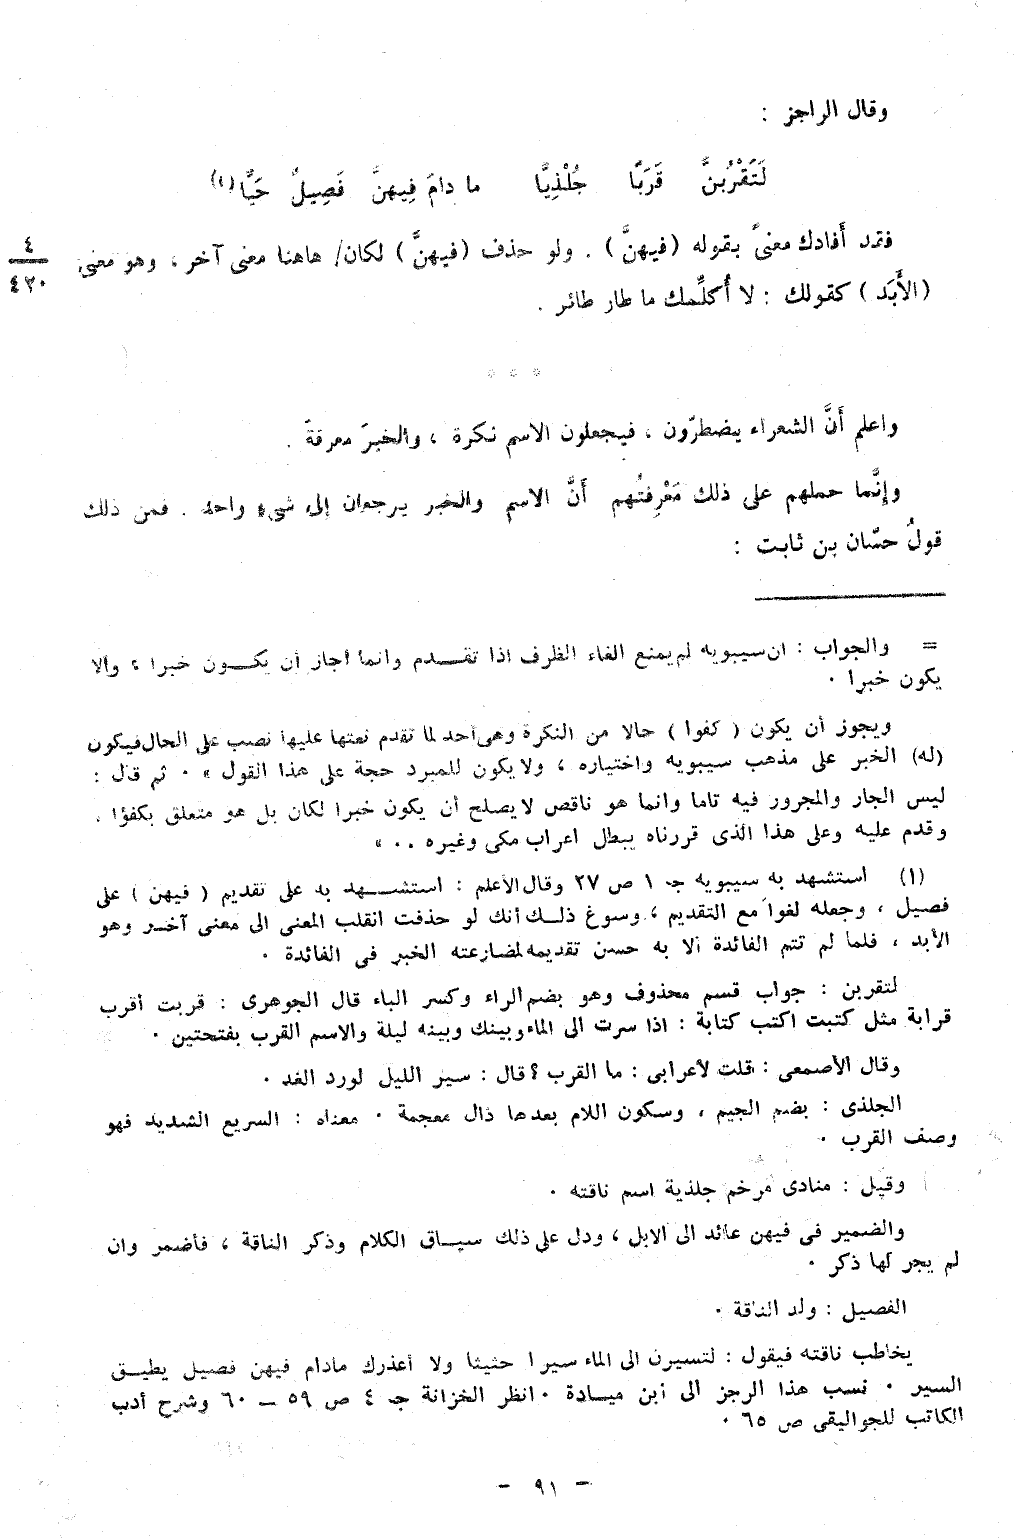 وقال الراجز :
لَتَقْرُبنَّ قَرَبًا جُلْذِيَّا ما دامَ فِيهنَّ فَصِيلٌ حَيَّا(١)
فقد أَفادك معنىً بقوله (فيهنَّ) . ولو حذف (فيهنَّ) لكان/ هاهنا معنى آخر ، وهو معنى
٤
٤٢٠
(الأَبَد) كقولك : لا أُكلِّمك ما طار طائر .
* * *
واعلم أَنَّ الشعراء يضطرّون ، فيجعلون الاسم نكرة ، والخبرَ معرفةً .
وإِنَّما حملهم على ذلك مَعْرِفتُهم أَنَّ الاسم والخبر يرجعان إِلى شيءٍ واحد . فمن ذلك
قولُ حسّان بن ثابت :
= والجواب : ان سيبويه لم يمنع الغاء الظرف اذا تقـــدم وانما أجاز أن يكـــون خبرا ، وألا
يكون خبرا .
ويجوز أن يكون ( كفوا ) حالا من النكرة وهى أحد لما تقدم نعتها عليها نصب على الحال فيكون
(له) الخبر على مذهب سيبويه واختياره ، ولا يكون للمبرد حجة على هذا القول » . ثم قال :
ليس الجار والمجرور فيه تاما وانما هو ناقص لا يصلح أن يكون خبرا لكان بل هو متعلق بكفؤا .
وقدم عليه وعلى هذا الذى قررناه يبطل اعراب مكى وغيره . . »
(١) استشهد به سيبويه جـ ١ ص ٢٧ وقال الأعلم : استشـــهد به على تقديم ( فيهن ) على
فصيل ، وجعله لغوا مع التقديم ، وسوغ ذلــك أنك لو حذفت انقلب المعنى الى معنى آخــر وهو
الأبد ، فلما لم تتم الفائدة الا به حسن تقديمه لمضارعته الخبر فى الفائدة .
لتقربن : جواب قسم محذوف وهو بضم الراء وكسر الباء قال الجوهرى : قربت أقرب
قرابة مثل كتبت اكتب كتابة : اذا سرت الى الماء وبينك وبينه ليلة والاسم القرب بفتحتين .
وقال الأصمعى : قلت لأعرابى : ما القرب ؟ قال : سير الليل لورد الغد .
الجلذى : بضم الجيم ، وسكون اللام بعدها ذال معجمة . معناه : السريع الشديد فهو
وصف القرب .
وقيل : منادى مرخم جلذية اسم ناقته .
والضمير فى فيهن عائد الى الابل ، ودل على ذلك سيـــاق الكلام وذكر الناقة ، فأضمر وان
لم يجر لها ذكر .
الفصيل : ولد الناقة .
يخاطب ناقته فيقول : لتسيرن الى الماء سيرا حثيثا ولا أعذرك مادام فيهن فصيل يطيــق
السير . نسب هذا الرجز الى ابن ميـــادة . انظر الخزانة جـ ٤ ص ٥٩ – ٦٠ وشرح أدب
الكاتب للجواليقى ص ٦٥ .
- ٩١ -